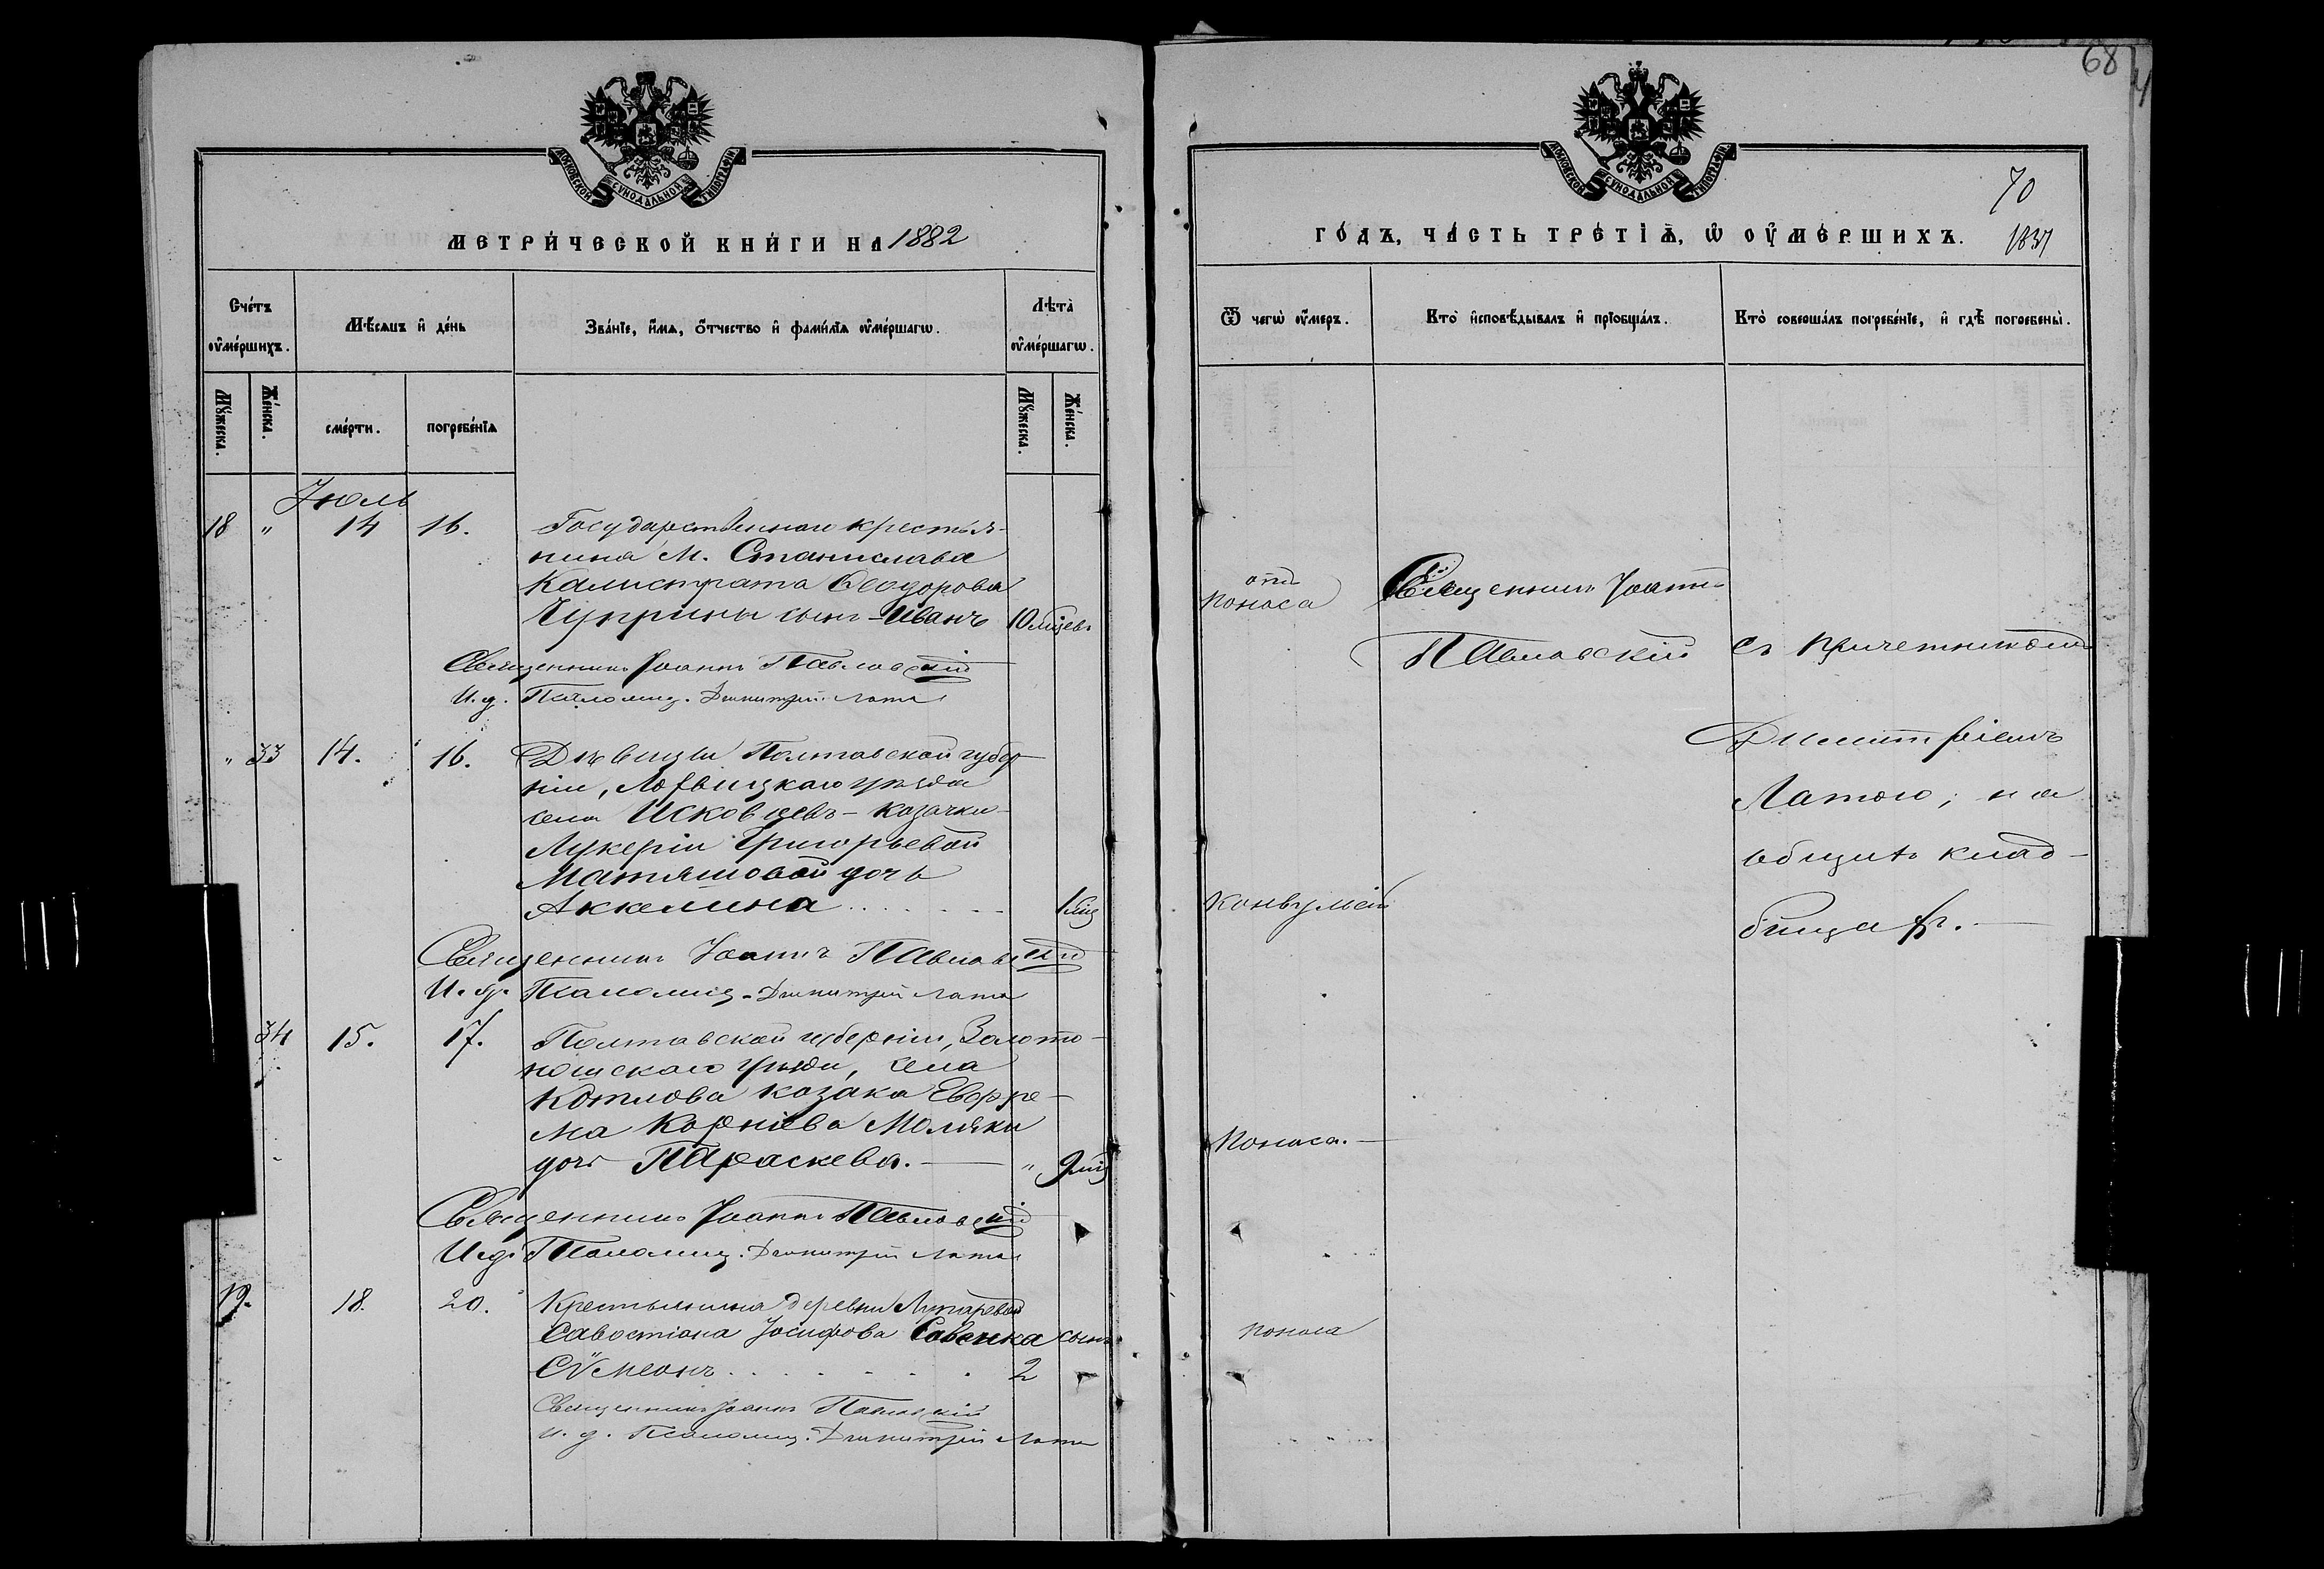 68
МОСКОВСКОЙ СУНОДАЛЬНОЙ ТИПОГРАФІИ
МЕТРИ́ЧЕСКОЙ КНИ́ГИ НА 1882
Сче́тъ ᲂу҆ме́ршихъ.
Мѣ́сѧцъ и҆ де́нь
Зва́нїе, и҆́мѧ, ѻ҆́тчество и҆ фами́лїѧ ᲂу҆ме́ршагѡ.
Лѣта̀ ᲂу҆ме́ршагѡ.
Мꙋ́жеска.
Же́нска.
сме́рти.
погребе́нїѧ
Мꙋ́жеска.
Же́нска.
Іюль
18 " 14 16. Государственнаго крестья-
нина М. Станислава
Калистрата Ѳеодорова
Чуприны сынъ Иванъ 10 мцевъ
Священникъ Іоаннъ Павловскій
И. д. Псаломщ. Димитрій Лата
" 33 14. 16. Дѣвицы Полтавской губер
ніи, Лохвицкаго уѣзда
села Исковцевъ - козачки
Лукеріи Григорьевой
Матяшовой дочь
Аккелина . . . . . . 1 мцъ
Священникъ Іоаннъ Павловскій
И. д. Псаломщ. Димитрій Лата
34 15. 17. Полтавской губерніи, Золото-
ношскаго уѣзда, села
козака Евфре-
ма Корніева Моляки
дочь Параскева. " 9 мц
Священникъ Іоаннъ Павловскій
И. д. Псаломщ. Димитрій Лата
19. 18. 20. Крестьянина деревни Лупаревой
Савостіана Іосифова Савенка сынъ
Сѵмеонъ . . . . . . . 2
Священникъ Іоаннъ Павловскій
и. д. Псаломщ. Димитрій Лата
МОСКОВСКОЙ СУНОДАЛЬНОЙ ТИПОГРАФІИ
70
ГО́ДЪ, ЧА́СТЬ ТРЕ́ТІѦ, Ѡ ОУ҆МЕ́РШИХЪ.
Ѿ чегѡ̀ ᲂу҆́меръ.
Кто̀ и҆сповѣ́дывалъ и҆ прїѡбща́лъ.
Кто̀ соверша́лъ погребе́нїе, и҆ гдѣ̀ погребены̀.
отъ
поноса
Священникъ Іоаннъ
Павловскій съ причетникомъ
Димитріемъ
Латою; на
общемъ клад-
бищѣ.
Конвульсій
Поноса.
поноса